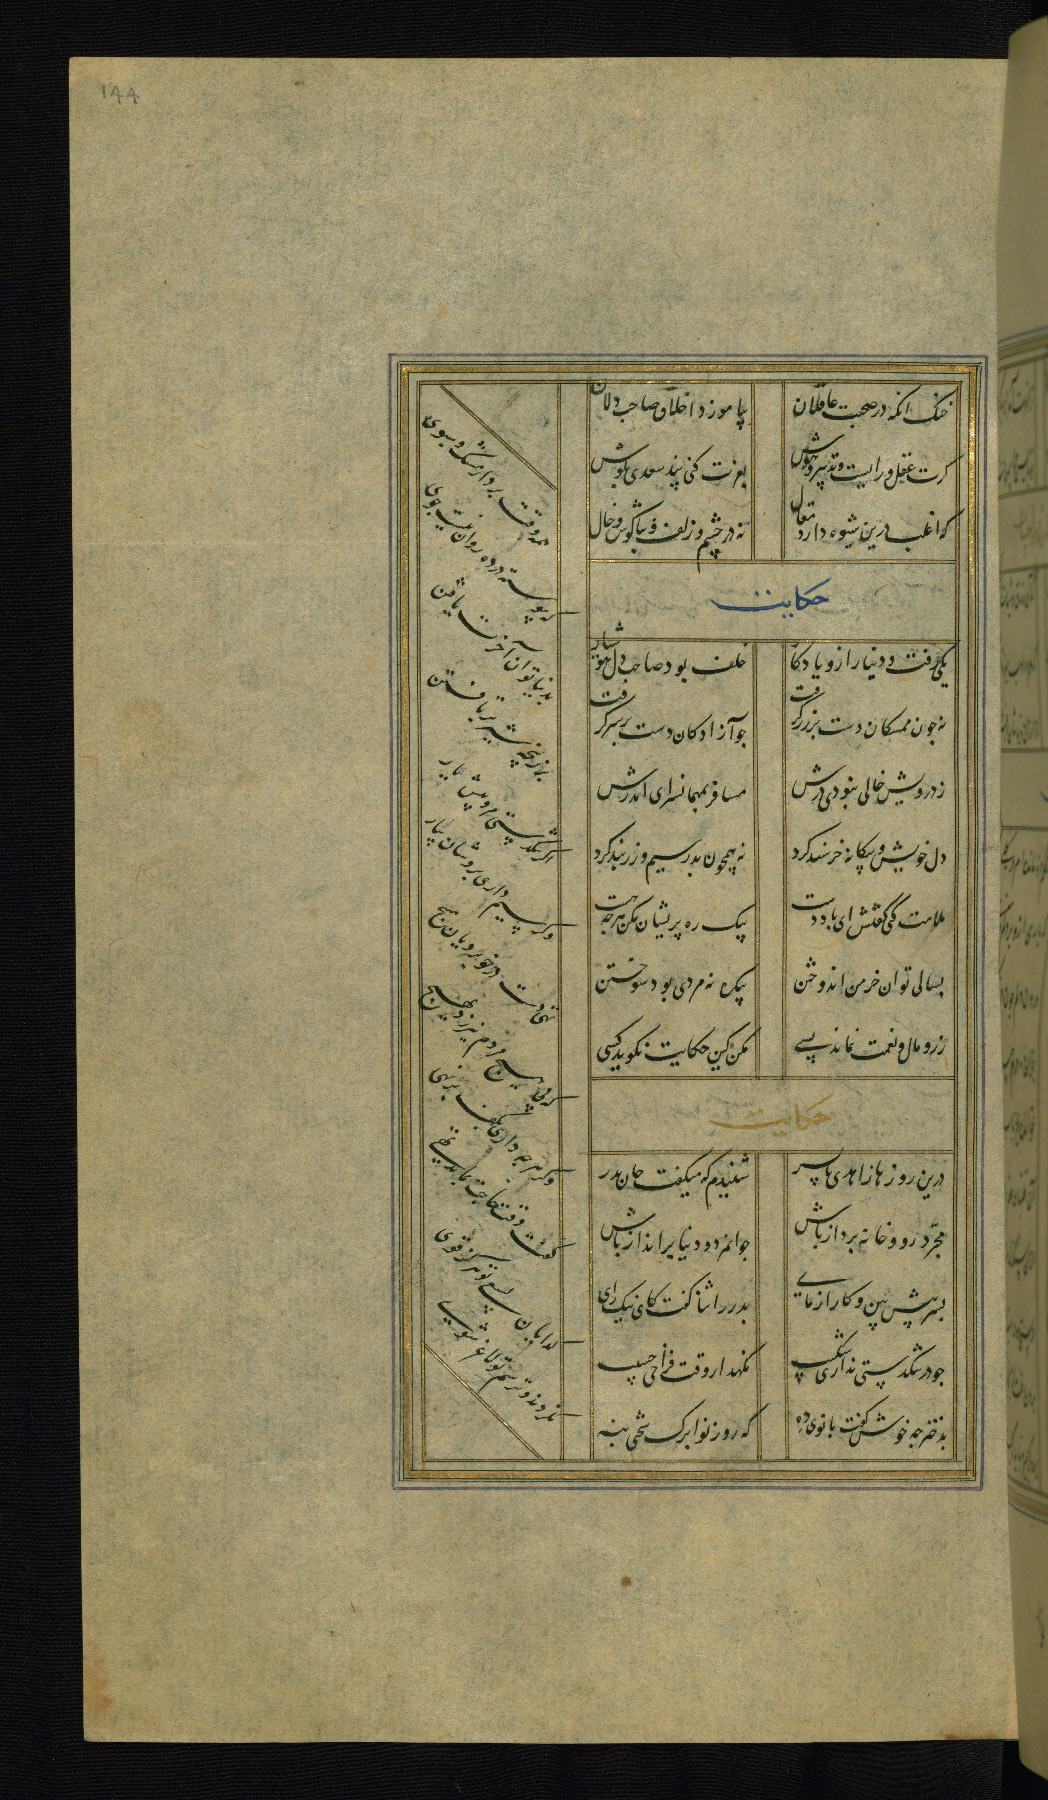 ۱۴۴
خنک انکه در صحبت عاقلان
بیاموزد اخلاق صاحب دلان
کرت عقل و رایست و تدبیر و هوش
بعزت کنی پند سعدی بکوش
که اغلب درین شیوه دارد مقال
نه در چشم و زلف و بناکوش و خال
حکایت
یکی رفت و دنیا ازو یادکار
خلف بود صاحب دل هوشیار
نه جون ممسکان دست بر زر کرفت
جو آزادکان دست ازو بر کرفت
ز درویش خالی نبودی درش
مسافر بمهمانسرای اندرش
دل خویش و بیکانه خرسند کرد
نه همچون پدر سیم و زر بند کرد
ملامت کنی کفتش ای باد دست
بیک ره پریشان مکن هرچه هست
بسالی توان خرمن اندوختن
بیک دم نه مردی بود سوختن
زر و مال و نعمت نماند بسی
مکر کین حکایت نکوید کسی
حکایت
درین روزها زاهدی با پسر
شنیدم که میکفت جان پدر
مجرّد رو و خانه پرداز باش
جوانمرد و دنیا برانداز باش
پسر پیش بین و کار ازمای
پدر را ثنا کفت کای نیک رای
جو در تنکدستی نداری شکیب
نکهدار وقت فراخی حسیب
بدختر جه خوش کفت بانوی ده
که روز نوا برک سختی بنه
همه وقت بردار مشک و سبوی
که پیوسته در ده روان نیست جوی
بدنیا توان آخرت یافتن
بزر پنجه شیر برتافتن
اکر تنکدستی مرو پیش یار
وکر سیم داری برو سان بیار
تهی دست در خوبرویان مپیچ
که بی هیچ مردم نیرزد بهیچ
وکر هرجه داری بکف برنهی
کفت وقت حاجت بماند تهی
کدایان بسعی تو هرکز قوی
نکردند و ترسم تو لاغر شوی